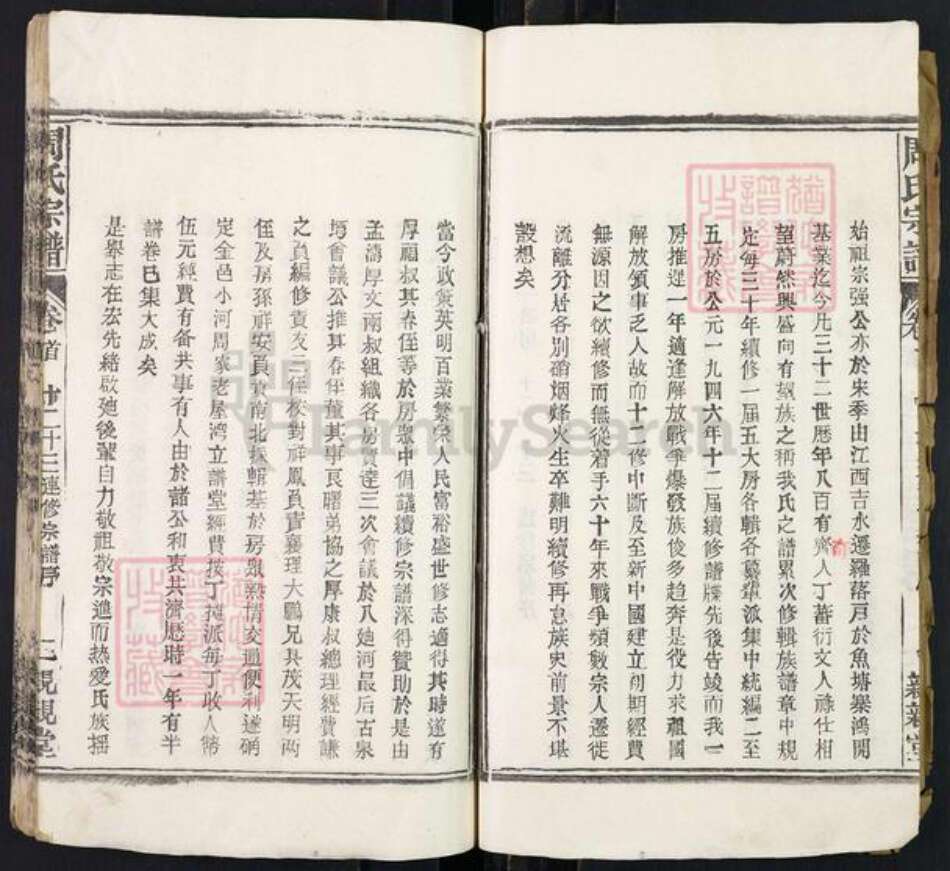 周氏宗譜
始祖宗强公亦於宋季由江西吉水遷羅落戸於魚塘寨鴻開
基業迄今凡三十二世歷年八百有齊人丁蕃衍文人祿仕相
望蔚然興盛向有望族之稱我氏之譜累次修輯族譜章中規
定每三十年續修一届五大房各輯各纂輩派集中統編二至
五房於公元一九四六年十二届續修譜牒先後告竣而我一
房推遲一年適逢解放戰爭爆發族俊多趋奔是役力求祖國
解放領事乏人故而十二修中斷及至新中國建立初期經費
無源因之欲續修而無從着手六十年來戰爭頻數宗人遷徙
流離分居各别硝烟烽火生卒難明續修再怠族史前景不堪
設想矣
當今政策英明百業繁榮人民富裕盛世修志適得其時遂有
厚福叔其春侄等於房眾中倡議續修宗譜深得贊助於是由
孟濤厚文兩叔組織各房賢達三次會議於八廸河最后古泉
塆會議公推其春侄董其事艮曙弟協之厚康叔總理經費謙
之負編修責友三侄校對祥鳳負責襄理大鵬兄其茂天明两
侄及房孫祥安負責南北採輯基於房眾熱情交通便利遂硧
定金邑小河周家老屋湾立譜堂經費按丁攤派每丁收人幣
伍元經費有备共事有人由於諸公和衷共濟歷時一年有半
譜卷已集大成矣
是舉志在宏先緒啟廸後輩自力敬祖敬宗進而热愛氏族揺
周氏宗譜
卷首
十二十三連修宗譜序
親親堂
FamilySearch